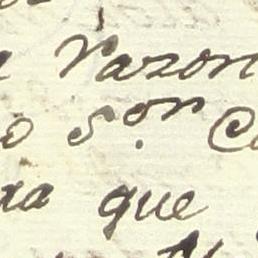 razon
o S.or C
ta que